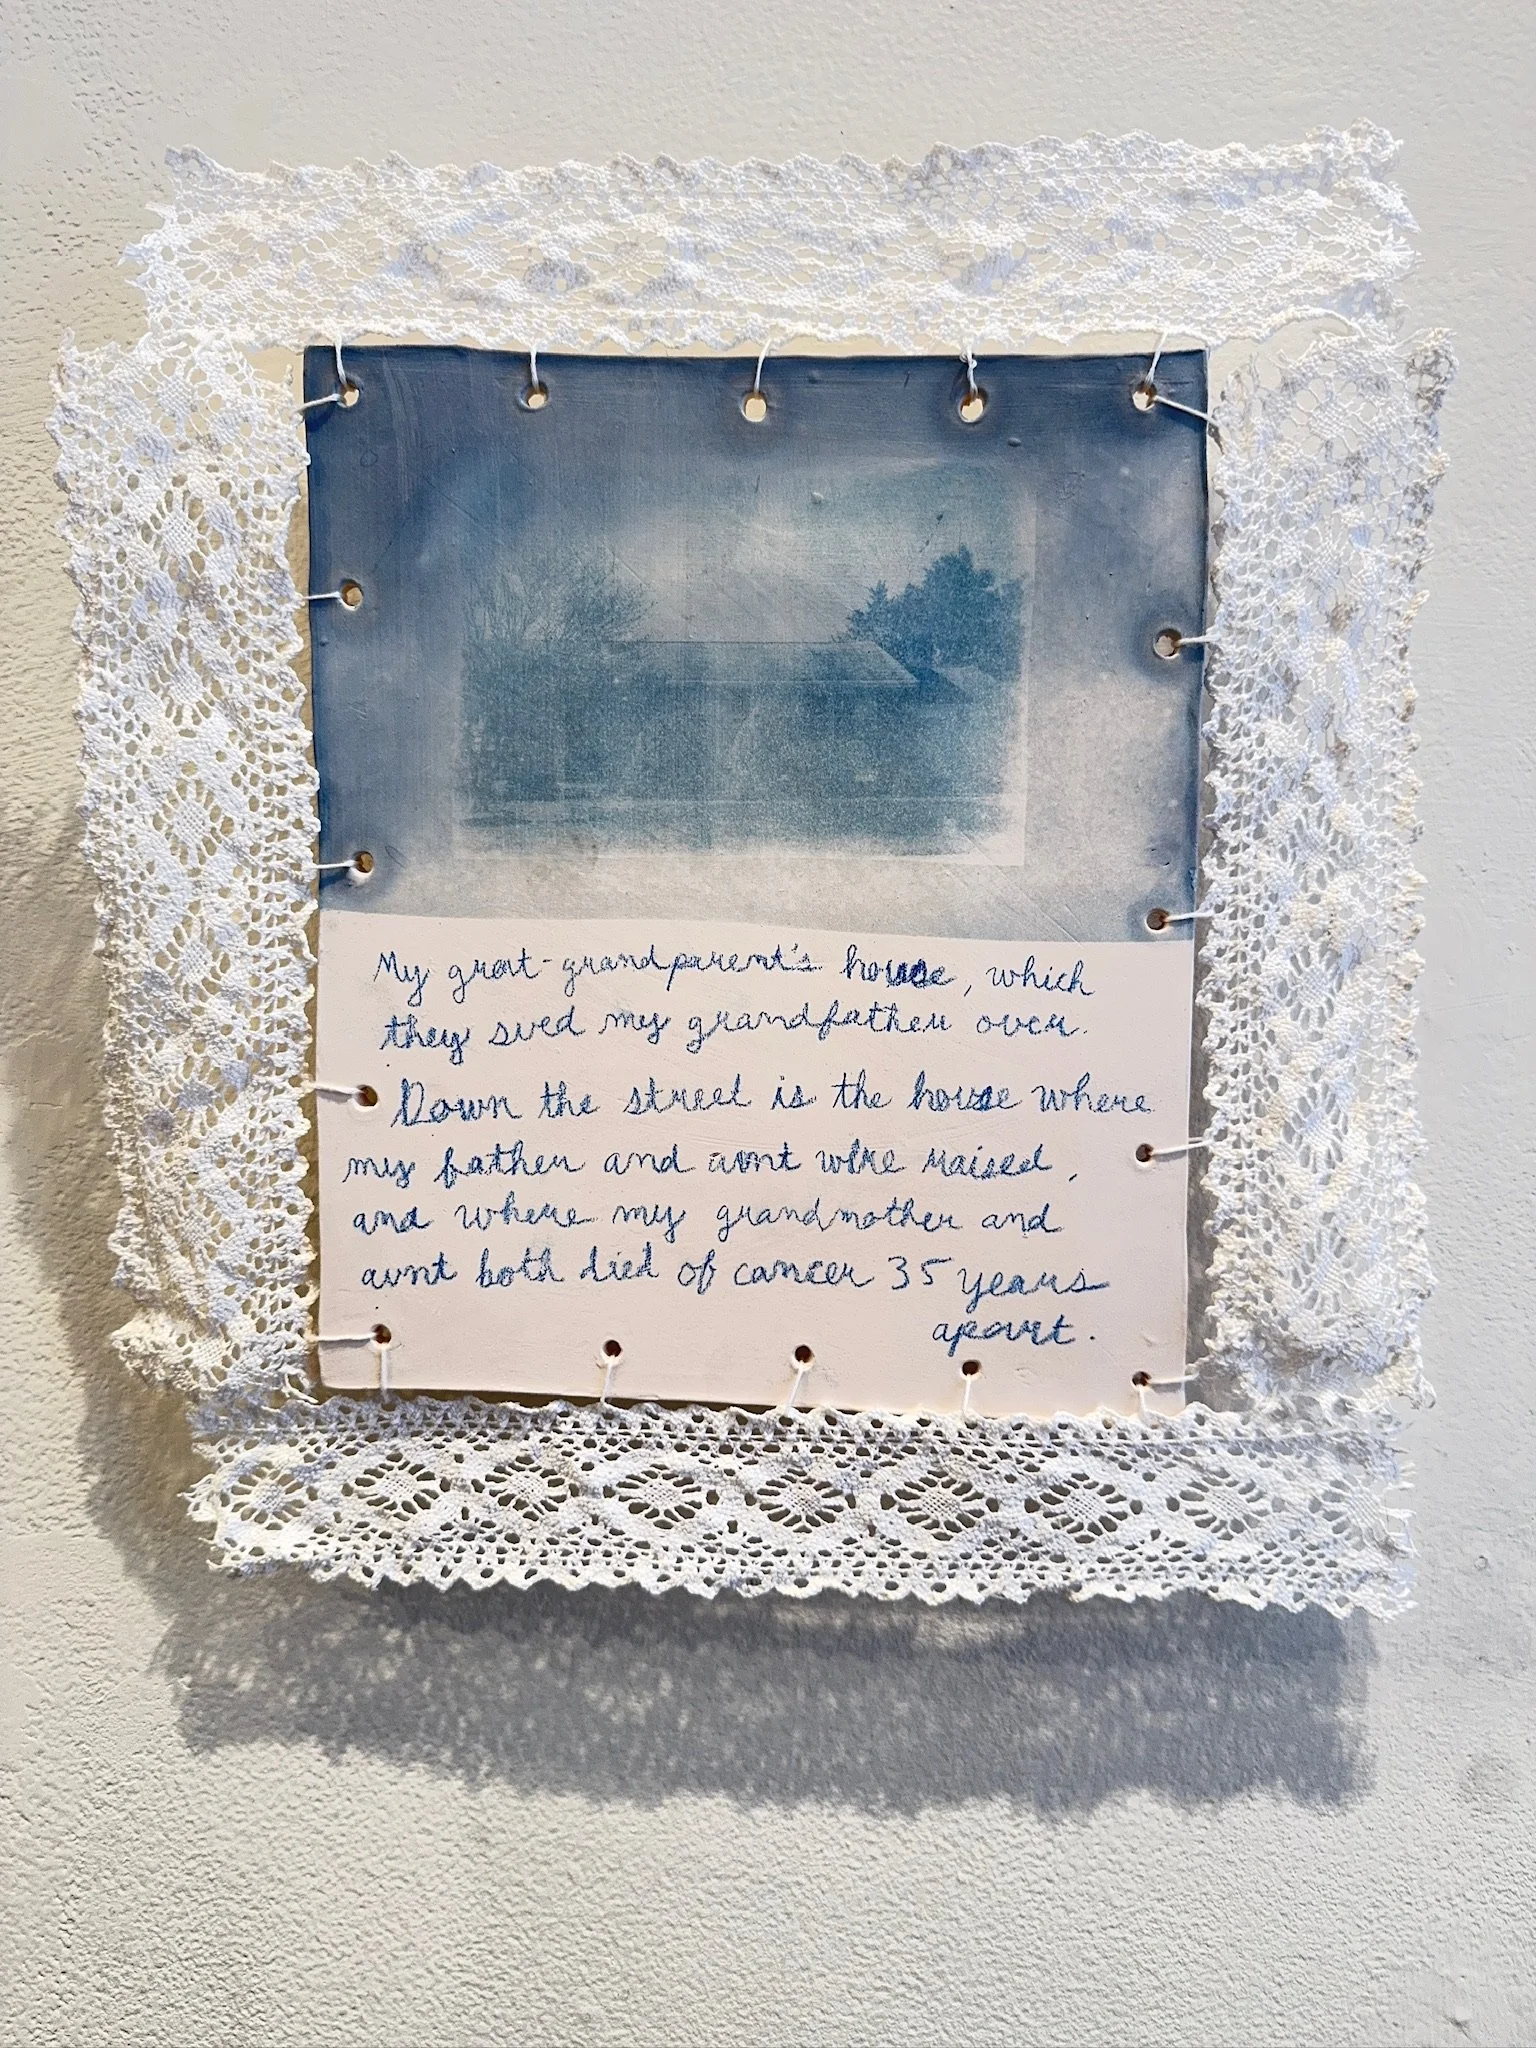 My great-grandparent's house, which
they sued my grandfather over.
Down the street is the house where
my father and aunt were raised,
and where my grandmother and
aunt both died of cancer 35 years
apart.